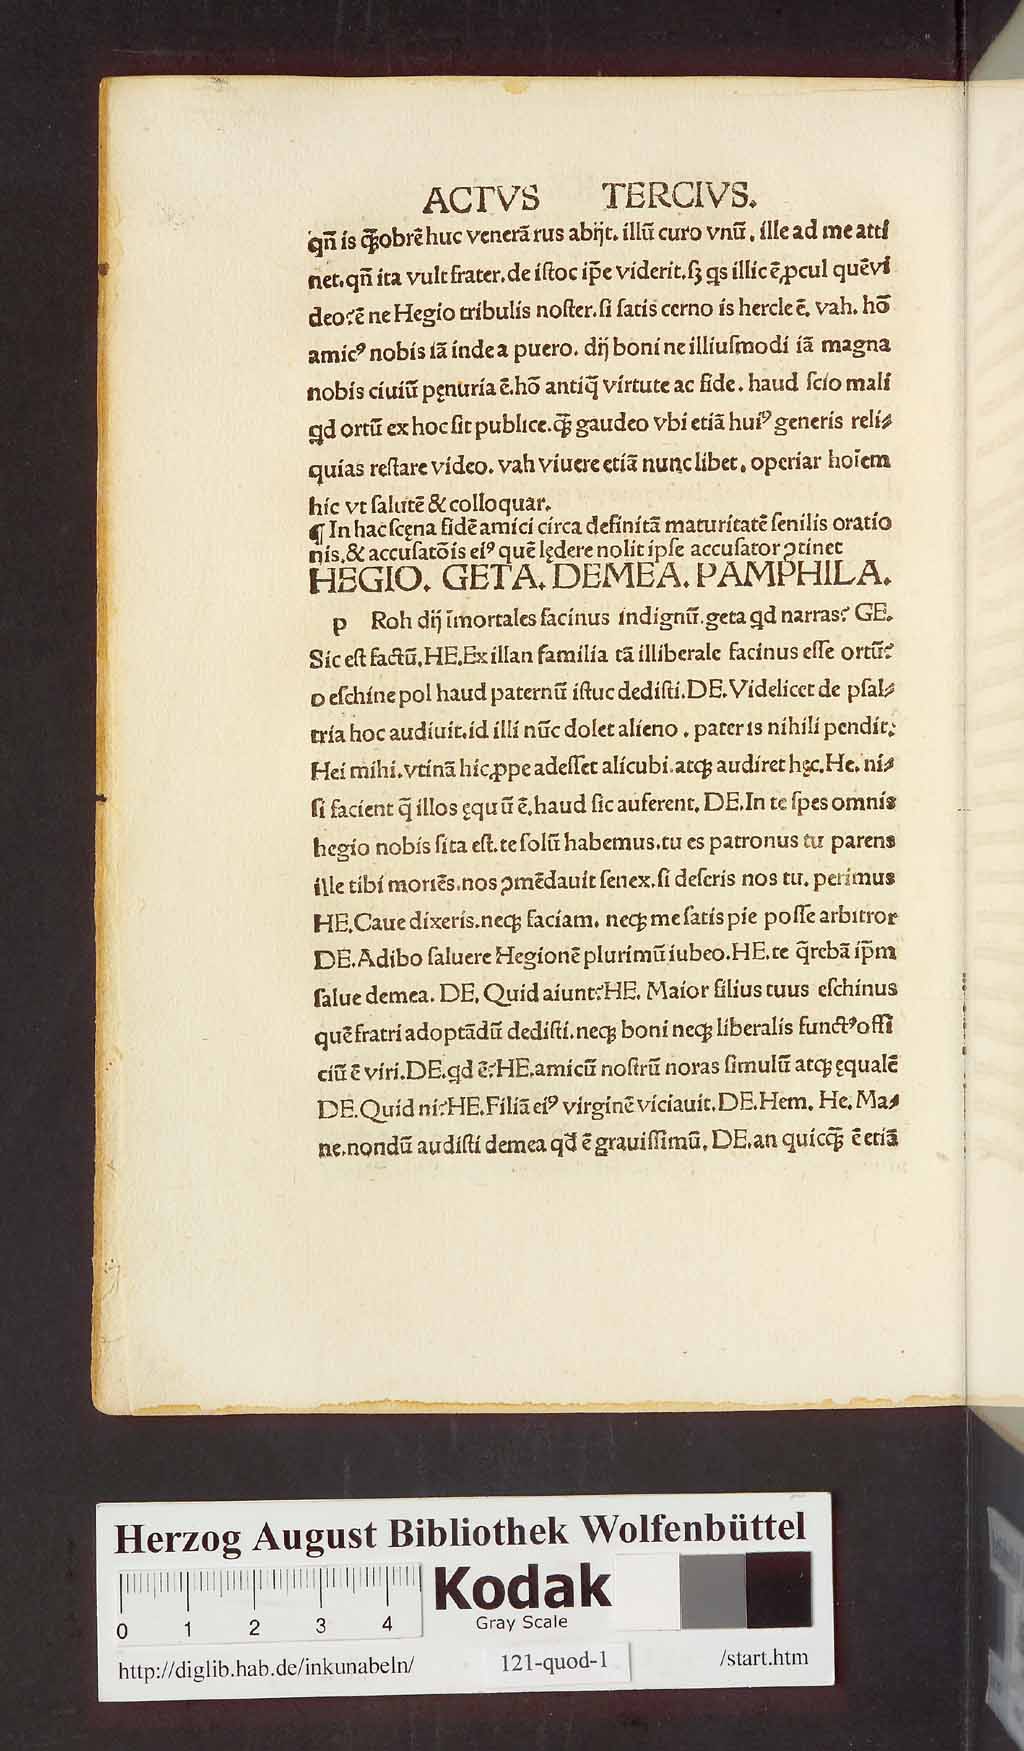 ACTVS TERCIVS.
qn̄ is q̃obrē huc venerā rus abijt. illū curo vnū. ille ad me atti
net. qn̄ ita vult frater. de iſtoc ip̄e viderit. ſꝫ qs illic ē ꝓcul quē vi
deo? ē ne Hegio tribulis noſter. ſi ſatis cerno is hercle ē. vah. hō
amicꝰ nobis iā inde a puero. dij boni ne illiuſmodi iā magna
nobis ciuiū pęnuria ē. hō antiq̄ virtute ac fide. haud ſcio mali
qd ortū ex hoc ſit publice. q̃ gaudeo vbi etiā huiꝰ generis reli⸗
quias reſtare video. vah viuere etiā nunc libet. operiar hoīem
hic vt ſalutē & colloquar.
¶ In hac ſcęna fidē amici circa definitā maturitatē ſenilis oratio
nis. & accuſatōis eiꝰ quē lędere nolit ipſe accuſator ꝯtinet
HEGIO. GETA. DEMEA. PAMPHILA.
p Roh dij īmortales facinus indignū. geta qd narras? GE.
Sic eſt factū. HE. Ex illan familia tā illiberale facinus eſſe ortū?
o eſchine pol haud paternū iſtuc dediſti. DE. Videlicet de pſal⸗
tria hoc audiuit. id illi nūc dolet alieno. pater is nihili pendit?
Hei mihi. vtinā hic ꝓpe adeſſet alicubi. atqꝫ audiret hęc. He. ni⸗
ſi facient q̄ illos ęquū ē. haud ſic auferent. DE. In te ſpes omnis
hegio nobis ſita eſt. te ſolū habemus. tu es patronus tu parens
ille tibi moriēs. nos ꝯmēdauit ſenex. ſi deſeris nos tu. perimus
HE. Caue dixeris. neqꝫ faciam. neqꝫ me ſatis pie poſſe arbitror
DE. Adibo ſaluere Hegionē plurimū iubeo. HE. te q̄rebā ip̄m
ſalue demea. DE. Quid aiunt? HE. Maior filius tuus eſchinus
quē fratri adoptādū dediſti. neqꝫ boni neqꝫ liberalis functꝰ offi
ciū ē viri. DE. qd ē? HE. amicū noſtrū noras ſimulū atqꝫ ęqualē
DE. Quid ni? HE. Filiā eiꝰ virginē viciauit. DE. Hem. He. Ma⸗
ne. nondū audiſti demea qd̄ ē grauiſſimū. DE. an quicq̃ ē etiā
Herzog August Bibliothek Wolfenbüttel
0 1 2 3 4
Kodak
Gray Scale
http://diglib.hab.de/inkunabeln/ 121-quod-1 /start.htm